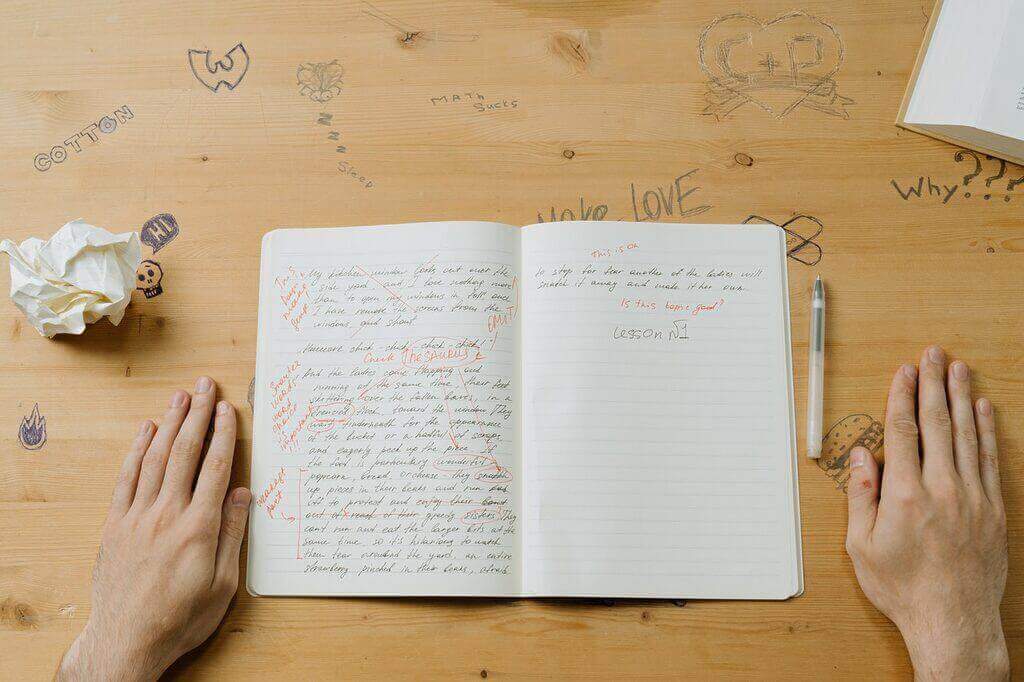 W
COTTON
ZZZZ
Sleep
MATH
Sucks
CP
Why???
Make LOVE
HI
My kitchen window looks out over the
side yard, and I love nothing more
than to open my windows in fall, once
I have remove the screens from the
windows, and shout
OMIT!
chick-chick-chick-chick!
Check THESAURUS
And the ladies come flapping and
running at the same time, their feet
skittering over the fallen leaves, in a
flock, toward the window They
wait underneath for the appearance
of the bucket or a handful of scraps,
and eagerly peck up the piece. If
the food is particulary wonderful
popcorn, bread, or cheese - they snatch
up pieces in their beaks and run
off to protect and enjoy their
out of reach of their greedy sisters They
can't run and eat the larger bits at the
same time, so it's hilarious to watch
them tear around the yard, an entire
strawberry pinched in their beaks, afraid
This is
to stop for fear another of the ladies will
snatch it away and make it her own.
Is this topic good?
LESSON №1